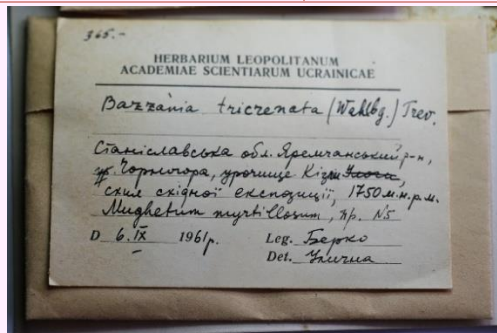 365.-
HERBARIUM LEOPOLITANUM
ACADEMIAE SCIENTIARUM UCRAINICAE
Bazzania tricrenata (Wahlbg.) Trev.
Станіславська обл. Яремчанський р-н,
урочище
схил східної експозиції, 1750 м.н.р.м.
Mughetum myrtillosum, пр. №5
D 6.IX 1961р. Leg. Берко
Det. Улична